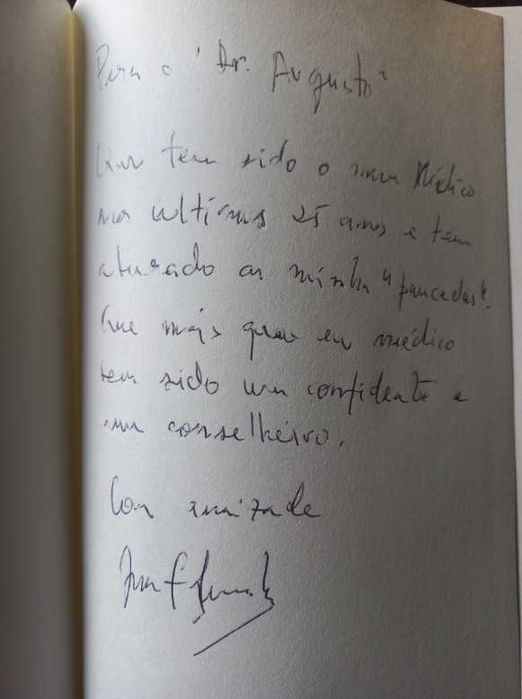 Para o "Dr. Augusto"
Que tem sido o meu Médico
nos últimos 25 anos e tem
aturado as minha "pancadas".
Que mais que um médico
tem sido um confidente e
um conselheiro.
Com amizade